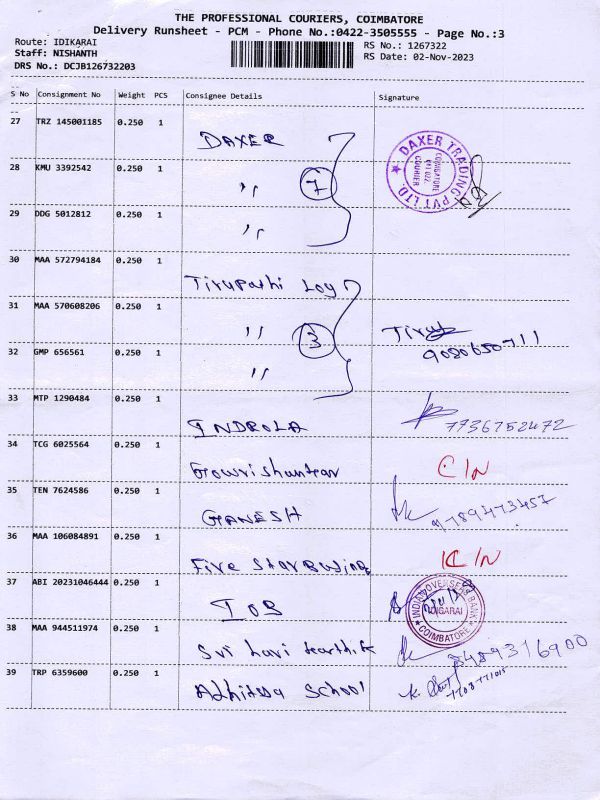 THE PROFESSIONAL COURIERS, COIMBATORE
Delivery Runsheet - PCM - Phone No.:0422-3505555 - Page No.:3
Route: IDIKARAI
RS No.: 1267322
Staff: NISHANTH
RS Date: 02-Nov-2023
DRS No.: DCJB126732203
S No Consignment No Weight PCS Consignee Details Signature
27 TRZ 145001185 0.250 1 DAXER
DAXER TRADING PVT LTD. COIMBATORE 641 022. COURIER
28 KMU 3392542 0.250 1 ,, 7
29 DDG 5012812 0.250 1 ,,
30 MAA 572794184 0.250 1 Tirupathi Log
31 MAA 570608206 0.250 1 ,, 3 Tirup
9080650711
32 GMP 656561 0.250 1 ,,
33 MTP 1290484 0.250 1 INDROLA 7736752472
34 TCG 6025564 0.250 1 Gowrishankar C/N
35 TEN 7624586 0.250 1 GANESH 9789473457
36 MAA 106084891 0.250 1 Five Star C/N
37 ABI 20231046444 0.250 1 IOB
INDIAN OVERSEAS BANK IDIGARAI COIMBATORE
38 MAA 944511974 0.250 1 Sri hari karthik 8489316900
39 TRP 6359600 0.250 1 Adhitya School